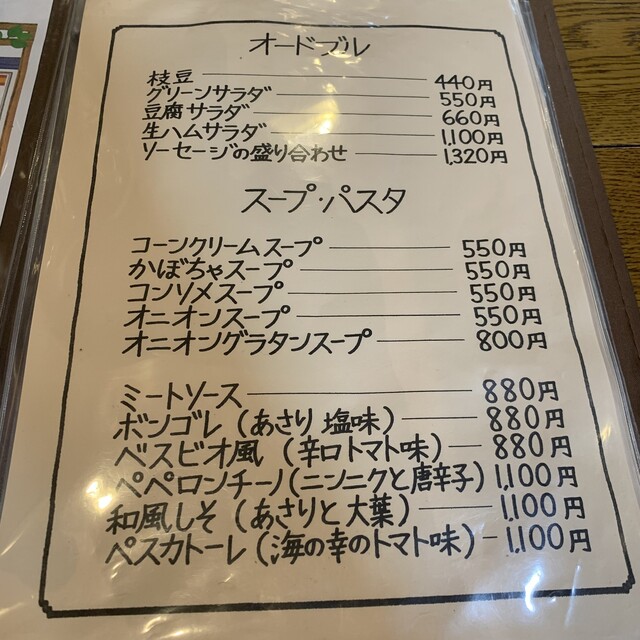 オードブル
枝豆 440円
グリーンサラダ 550円
豆腐サラダ 660円
生ハムサラダ 1,100円
ソーセージの盛り合わせ 1,320円
スープ・パスタ
コーンクリームスープ 550円
かぼちゃスープ 550円
コンソメスープ 550円
オニオンスープ 550円
オニオングラタンスープ 800円
ミートソース 880円
ボンゴレ（あさり 塩味） 880円
ベスビオ風（辛口トマト味） 880円
ペペロンチーノ（ニンニクと唐辛子） 1,100円
和風しそ（あさりと大葉） 1,100円
ペスカトーレ（海の幸のトマト味） 1,100円